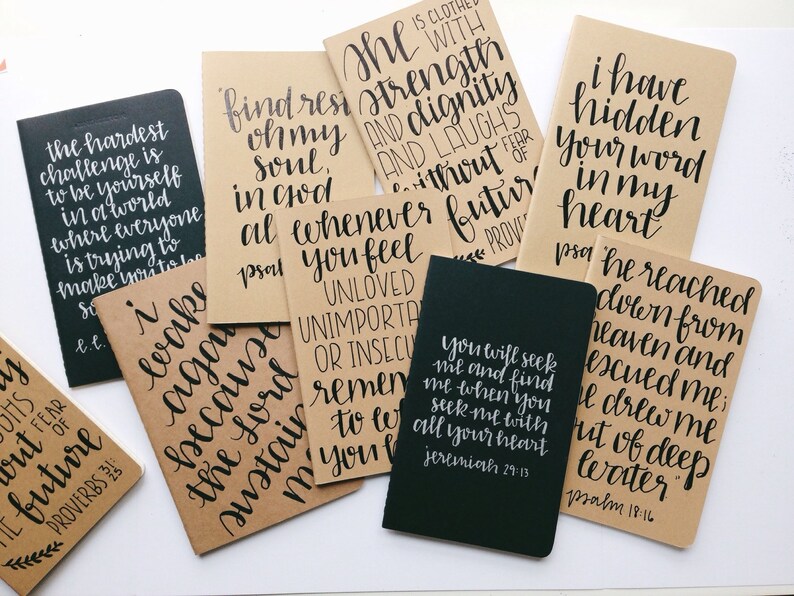 the hardest
challenge is
to be yourself
in a world
where everyone
is trying to
make you to be
so
e.e.
"find rest
oh my
soul,
in god
al
psal
She IS CLOTHED
WITH
strength
AND dignity
AND LAUGHS
without FEAR
OF
future
PROVERB
i have
hidden
your word
in my
heart
psa
i
wake
again
because
the Lord
sustain
m
whenever
you feel
UNLOVED
UNIMPORTA
OR INSECU
remem
to w
you b
you will seek
me and find
me when you
seek me with
all your heart
jeremiah 29:13
"he reached
down from
heaven and
escued me;
e drew me
out of deep
water"
psalm 18:16
out FEAR
OF
HE future
PROVERBS 31:
25